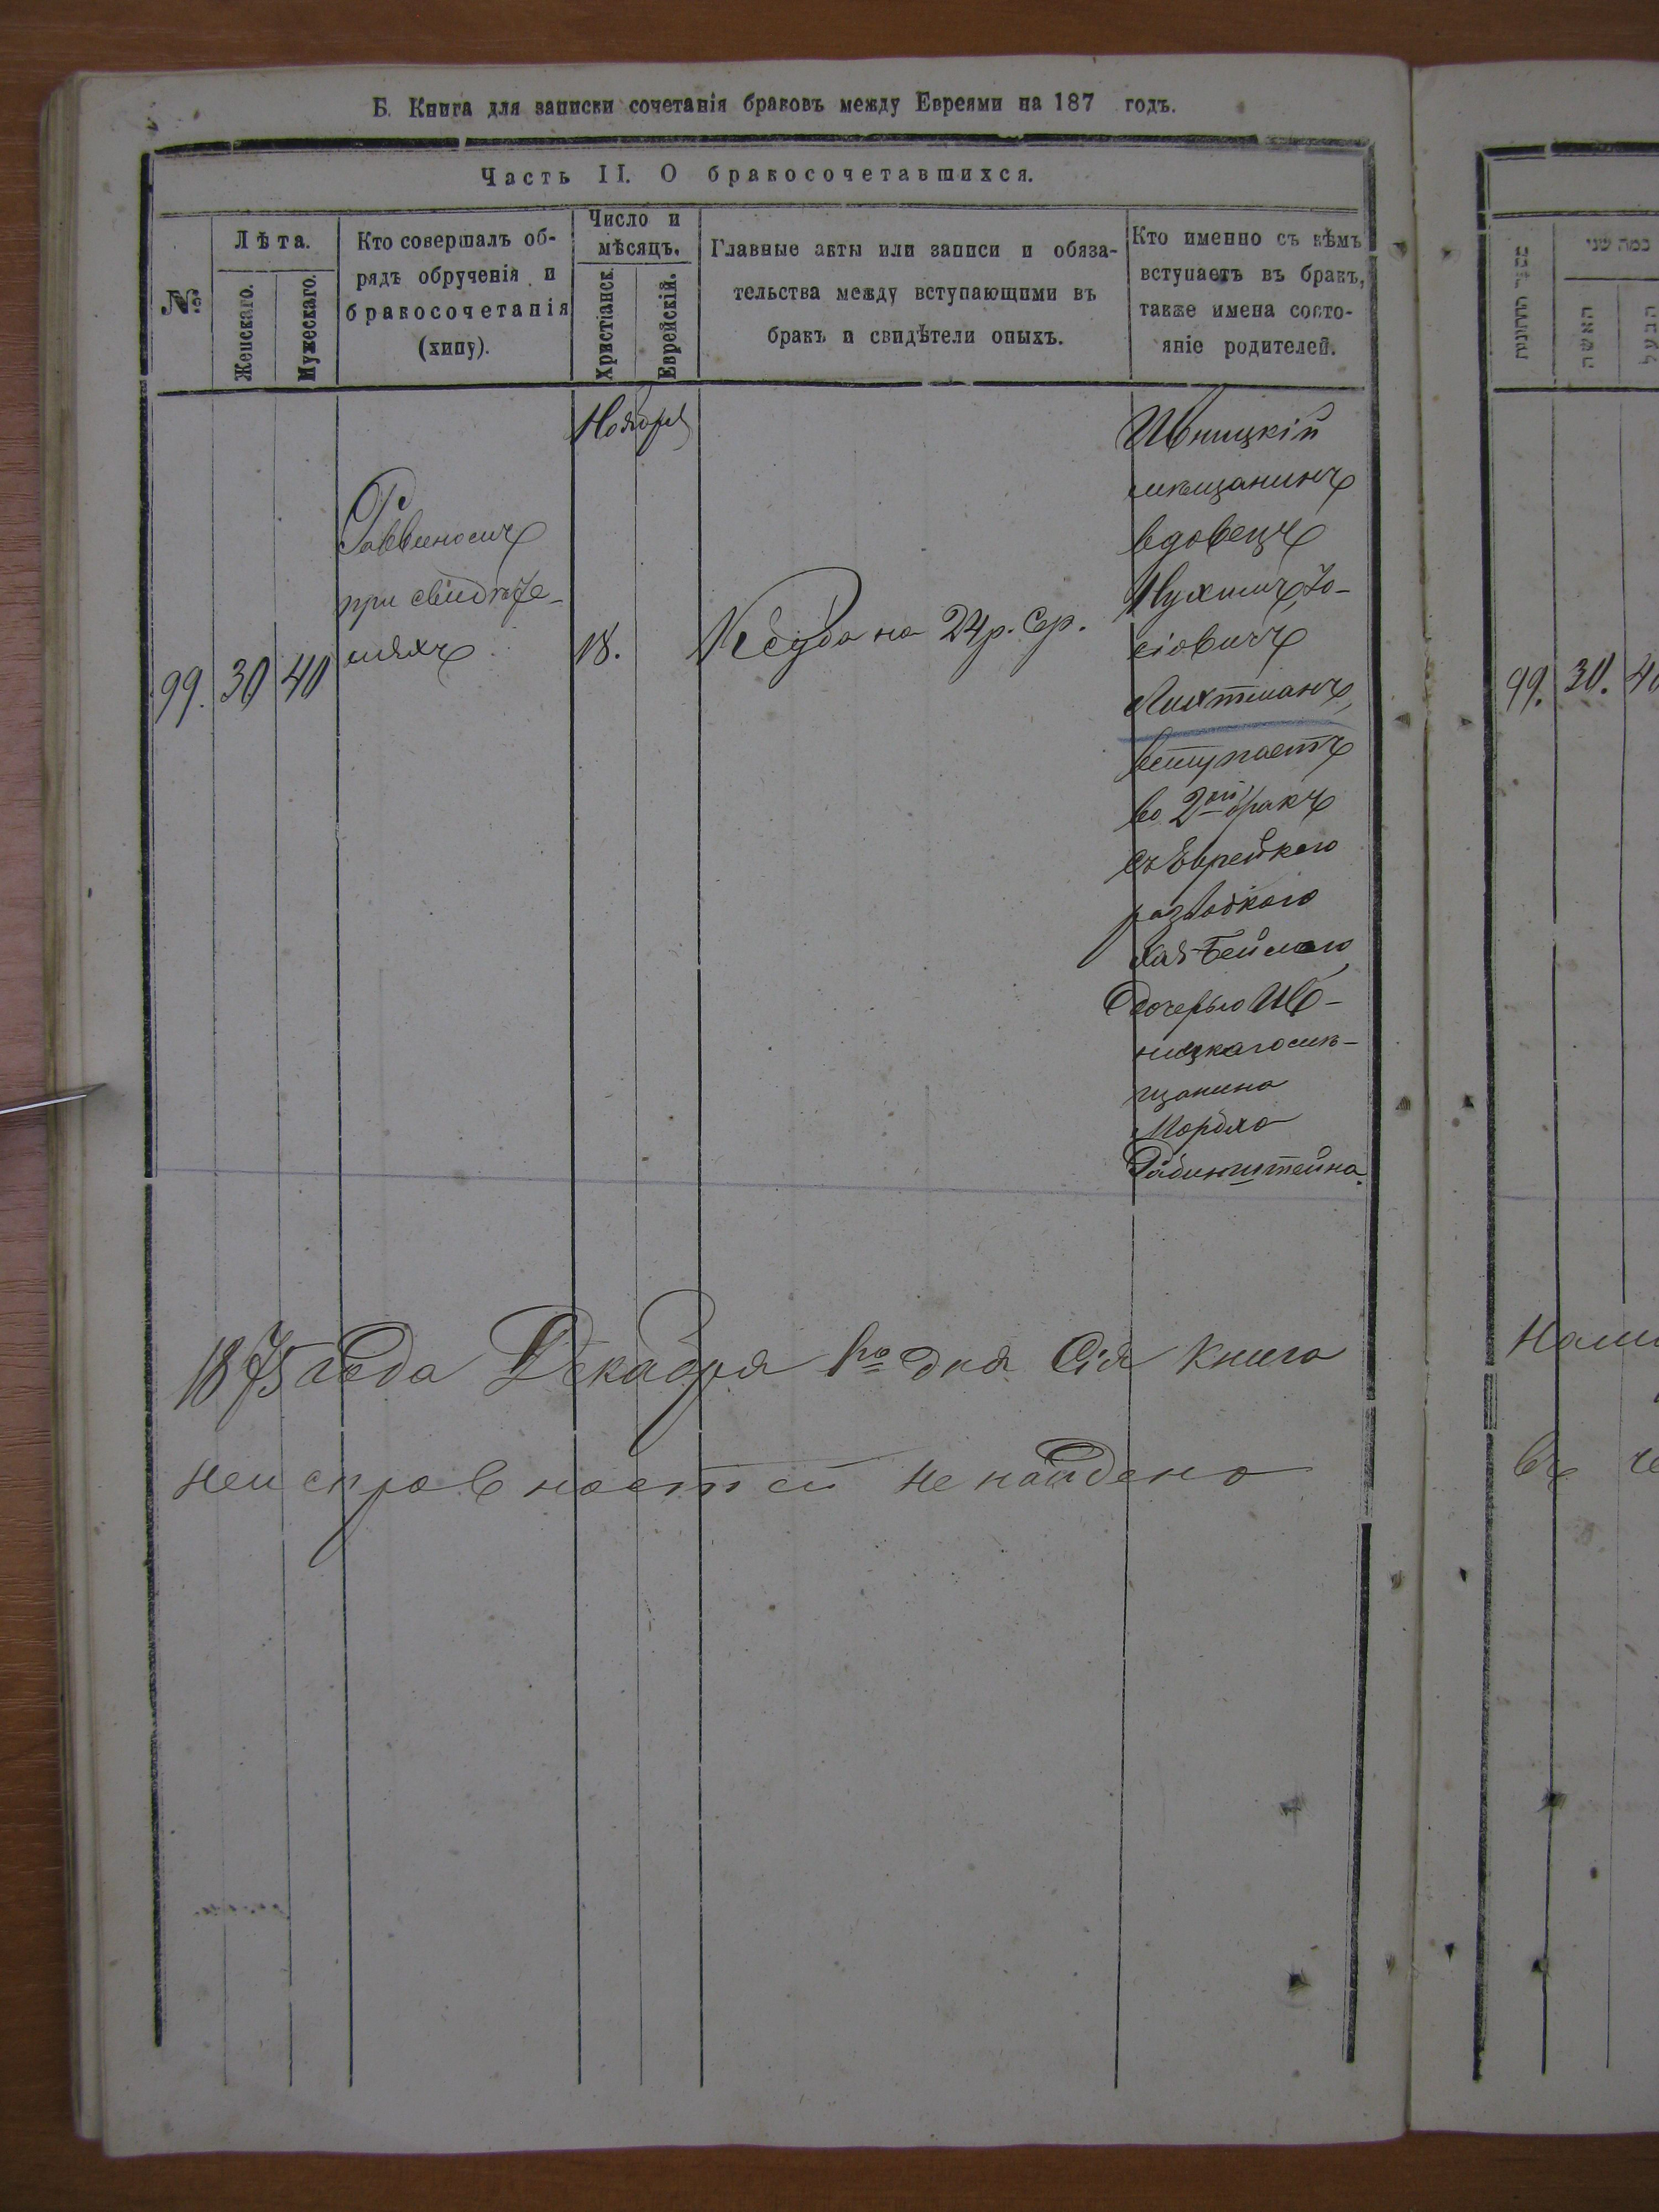 Б. Книга для записки сочетанія браковъ между Евреями на 187 годъ.
Часть II. О бракосочетавшихся.
№
Лѣта.
Женскаго.
Мужескаго.
Кто совершалъ об-
рядъ обрученія и
бракосочетанія
(хипу).
Число и
мѣсяцъ.
Христіанск.
Еврейскій.
Главные акты или записи и обяза-
тельства между вступающими въ
бракъ и свидѣтели оныхъ.
Кто именно съ кѣмъ
вступаетъ въ бракъ,
также имена состо-
яніе родителей.
Ноября
99.
30
40
Раввиномъ
при свидѣте-
ляхъ
18.
Ксуба на 24 р. Сер.
Ивницкій
мѣщанинъ
вдовецъ
Нухимъ Іо-
сіовичъ
Лихтманъ,
вступаетъ
во 2ой бракъ
съ Еврейкою
разводкою
Хая Бейлою
дочерью Ив-
ницкаго мѣ-
щанина
Мордка
Рабинштейна.
1875 года Декабря 1го дня Сія Книга
неисправностей не найдено
כמה שני
האשה
הבעל
99.
30.
въ